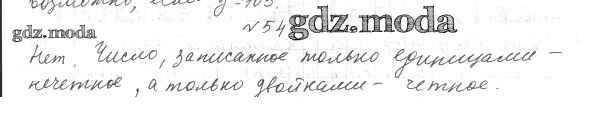 возможно, если y = 103.
№ 54
gdz.moda
gdz.moda
Нет. Число, записанное только единицами –
нечетное, а только двойками – четное.